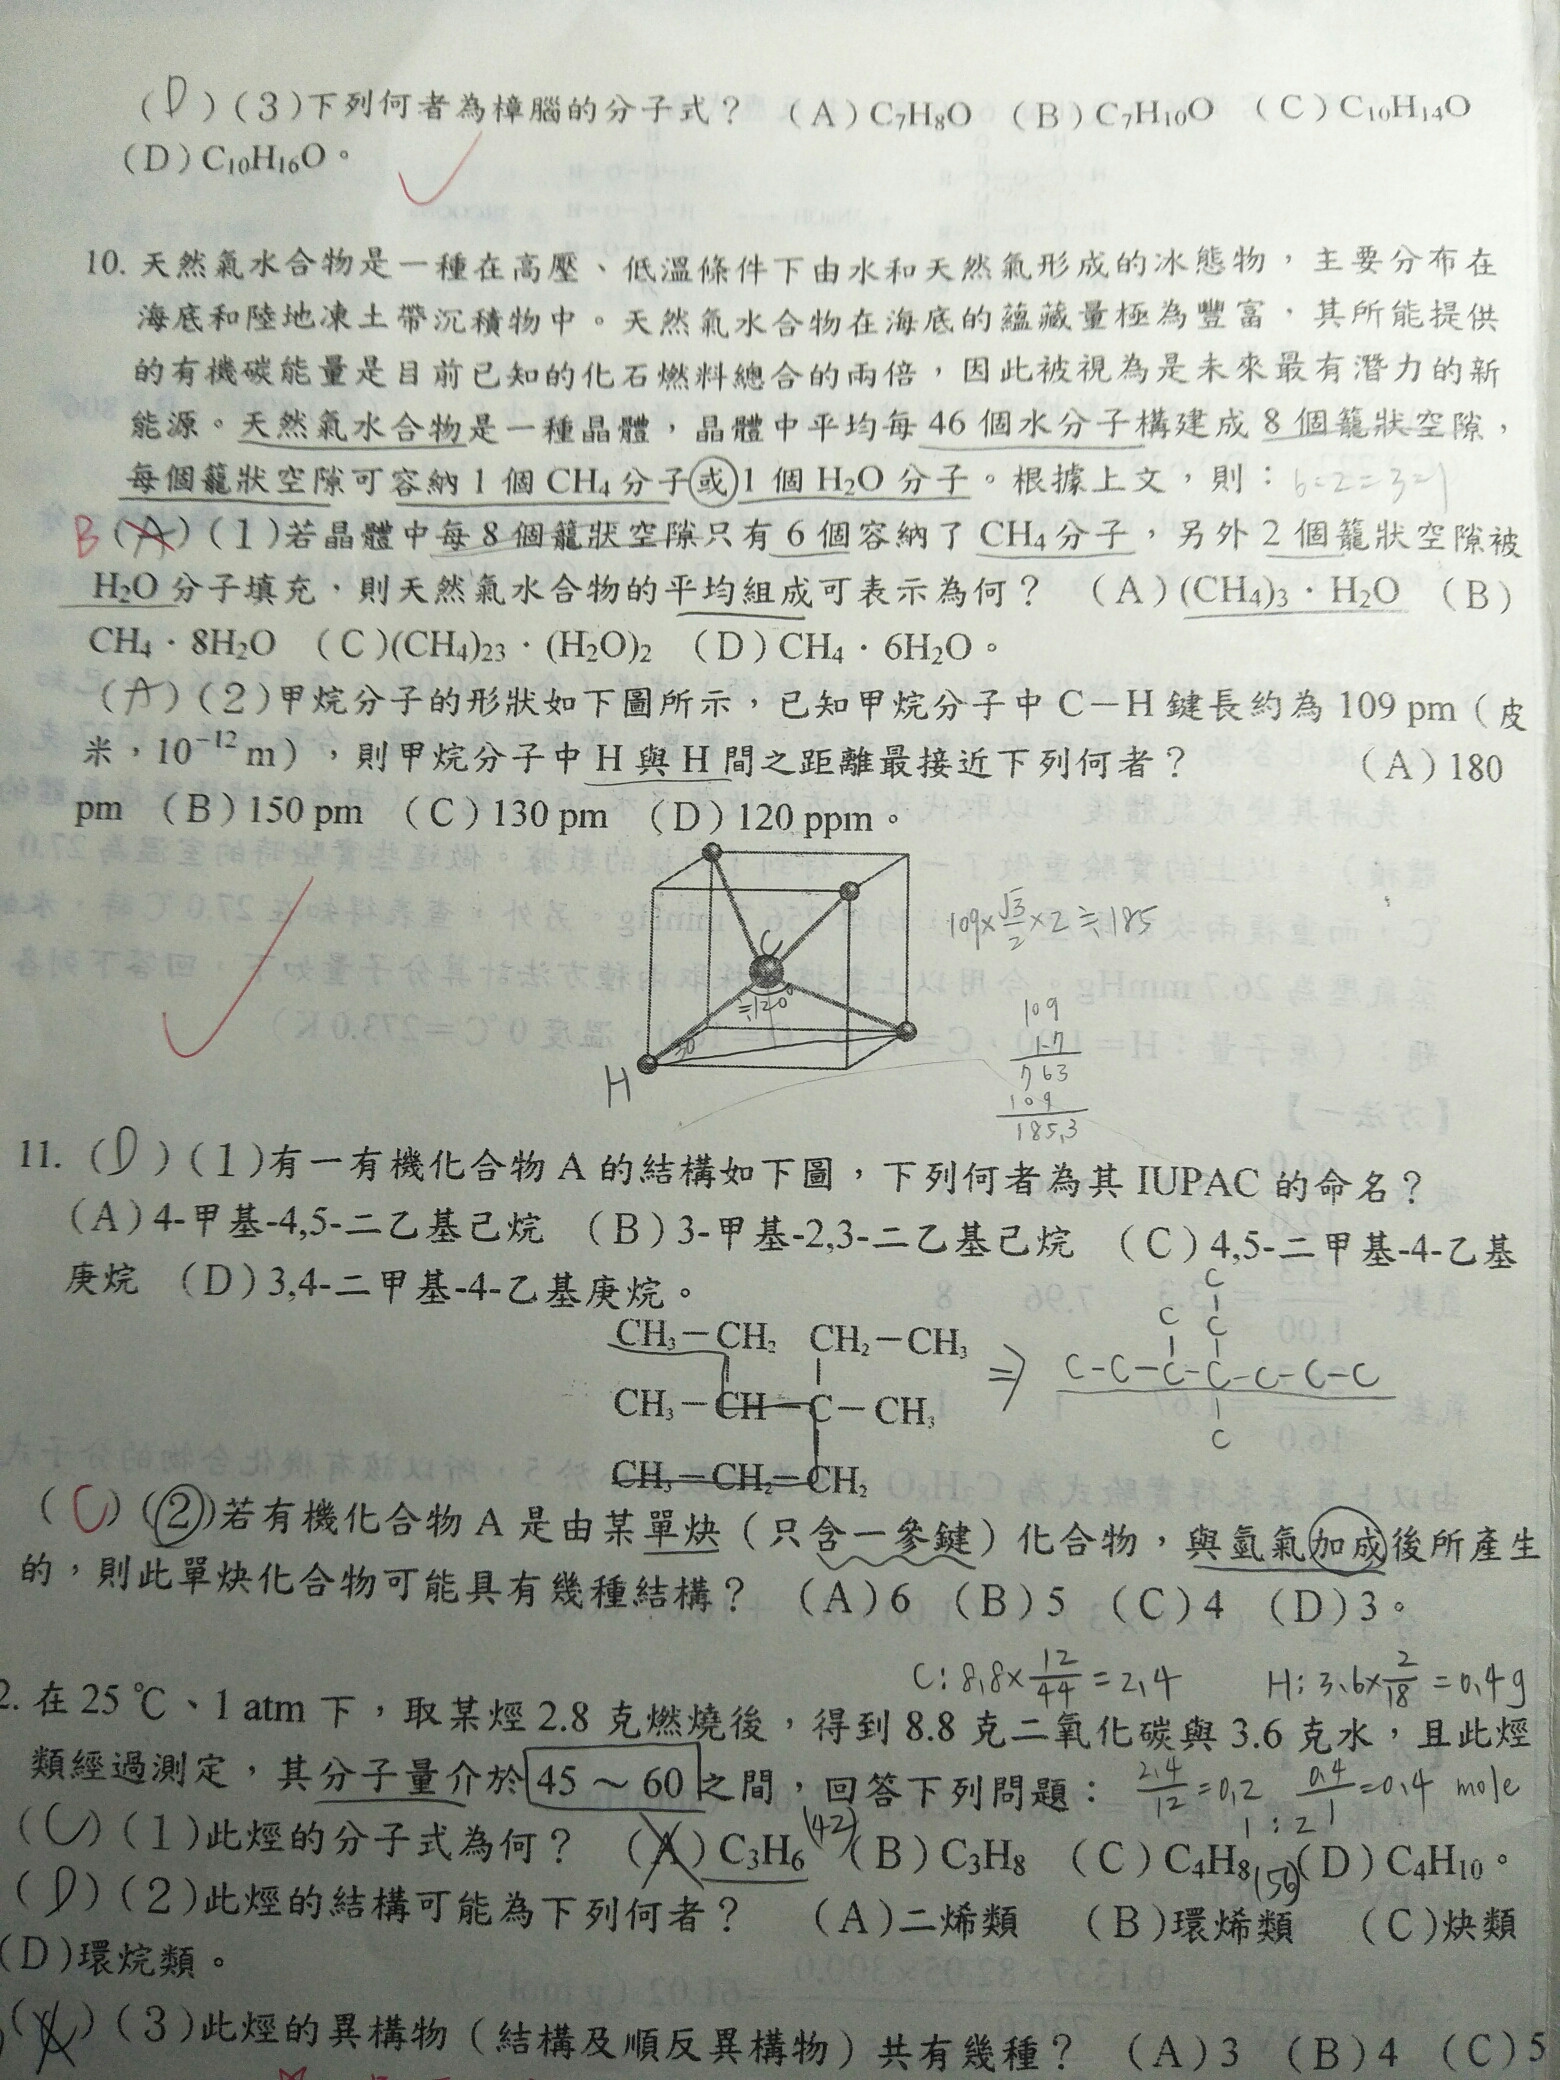 (D)(3)下列何者為樟腦的分子式？ (A)C₇H₈O (B)C₇H₁₀O (C)C₁₀H₁₄O
(D)C₁₀H₁₆O。
10. 天然氣水合物是一種在高壓、低溫條件下由水和天然氣形成的冰態物，主要分布在
海底和陸地凍土帶沉積物中。天然氣水合物在海底的蘊藏量極為豐富，其所能提供
的有機碳能量是目前已知的化石燃料總合的兩倍，因此被視為是未來最有潛力的新
能源。天然氣水合物是一種晶體，晶體中平均每 46 個水分子構建成 8 個籠狀空隙，
每個籠狀空隙可容納 1 個 CH₄ 分子或 1 個 H₂O 分子。根據上文，則： 6:2=3:1
B(A)(1)若晶體中每 8 個籠狀空隙只有 6 個容納了 CH₄ 分子，另外 2 個籠狀空隙被
H₂O 分子填充，則天然氣水合物的平均組成可表示為何？ (A)(CH₄)₃・H₂O (B)
CH₄・8H₂O (C)(CH₄)₂₃・(H₂O)₂ (D)CH₄・6H₂O。
(A)(2)甲烷分子的形狀如下圖所示，已知甲烷分子中 C－H 鍵長約為 109 pm（皮
米，10⁻¹² m），則甲烷分子中 H 與 H 間之距離最接近下列何者？ (A)180
pm (B)150 pm (C)130 pm (D)120 ppm。
109×√3/2×2≒185
C
≒120°
30°
H
109
1.7
763
109
185.3
11. (D)(1)有一有機化合物 A 的結構如下圖，下列何者為其 IUPAC 的命名？
(A)4-甲基-4,5-二乙基己烷 (B)3-甲基-2,3-二乙基己烷 (C)4,5-二甲基-4-乙基
庚烷 (D)3,4-二甲基-4-乙基庚烷。
C
C C
CH₃－CH₂ CH₂－CH₃
⇒ C-C-C-C-C-C-C
CH₃－CH－C－CH₃
C
CH₃－CH₂－CH₂
(C)(2)若有機化合物 A 是由某單炔（只含一參鍵）化合物，與氫氣加成後所產生
的，則此單炔化合物可能具有幾種結構？ (A)6 (B)5 (C)4 (D)3。
C: 8.8×12/44=2.4 H: 3.6×2/18=0.4g
2. 在 25 ℃、1 atm 下，取某烴 2.8 克燃燒後，得到 8.8 克二氧化碳與 3.6 克水，且此烴
類經過測定，其分子量介於 45～60 之間，回答下列問題： 2.4/12=0.2 0.4/1=0.4 mole
1:2
(C)(1)此烴的分子式為何？ (A)C₃H₆(42) (B)C₃H₈ (C)C₄H₈(56) (D)C₄H₁₀。
(D)(2)此烴的結構可能為下列何者？ (A)二烯類 (B)環烯類 (C)炔類
(D)環烷類。
(A)(3)此烴的異構物（結構及順反異構物）共有幾種？ (A)3 (B)4 (C)5